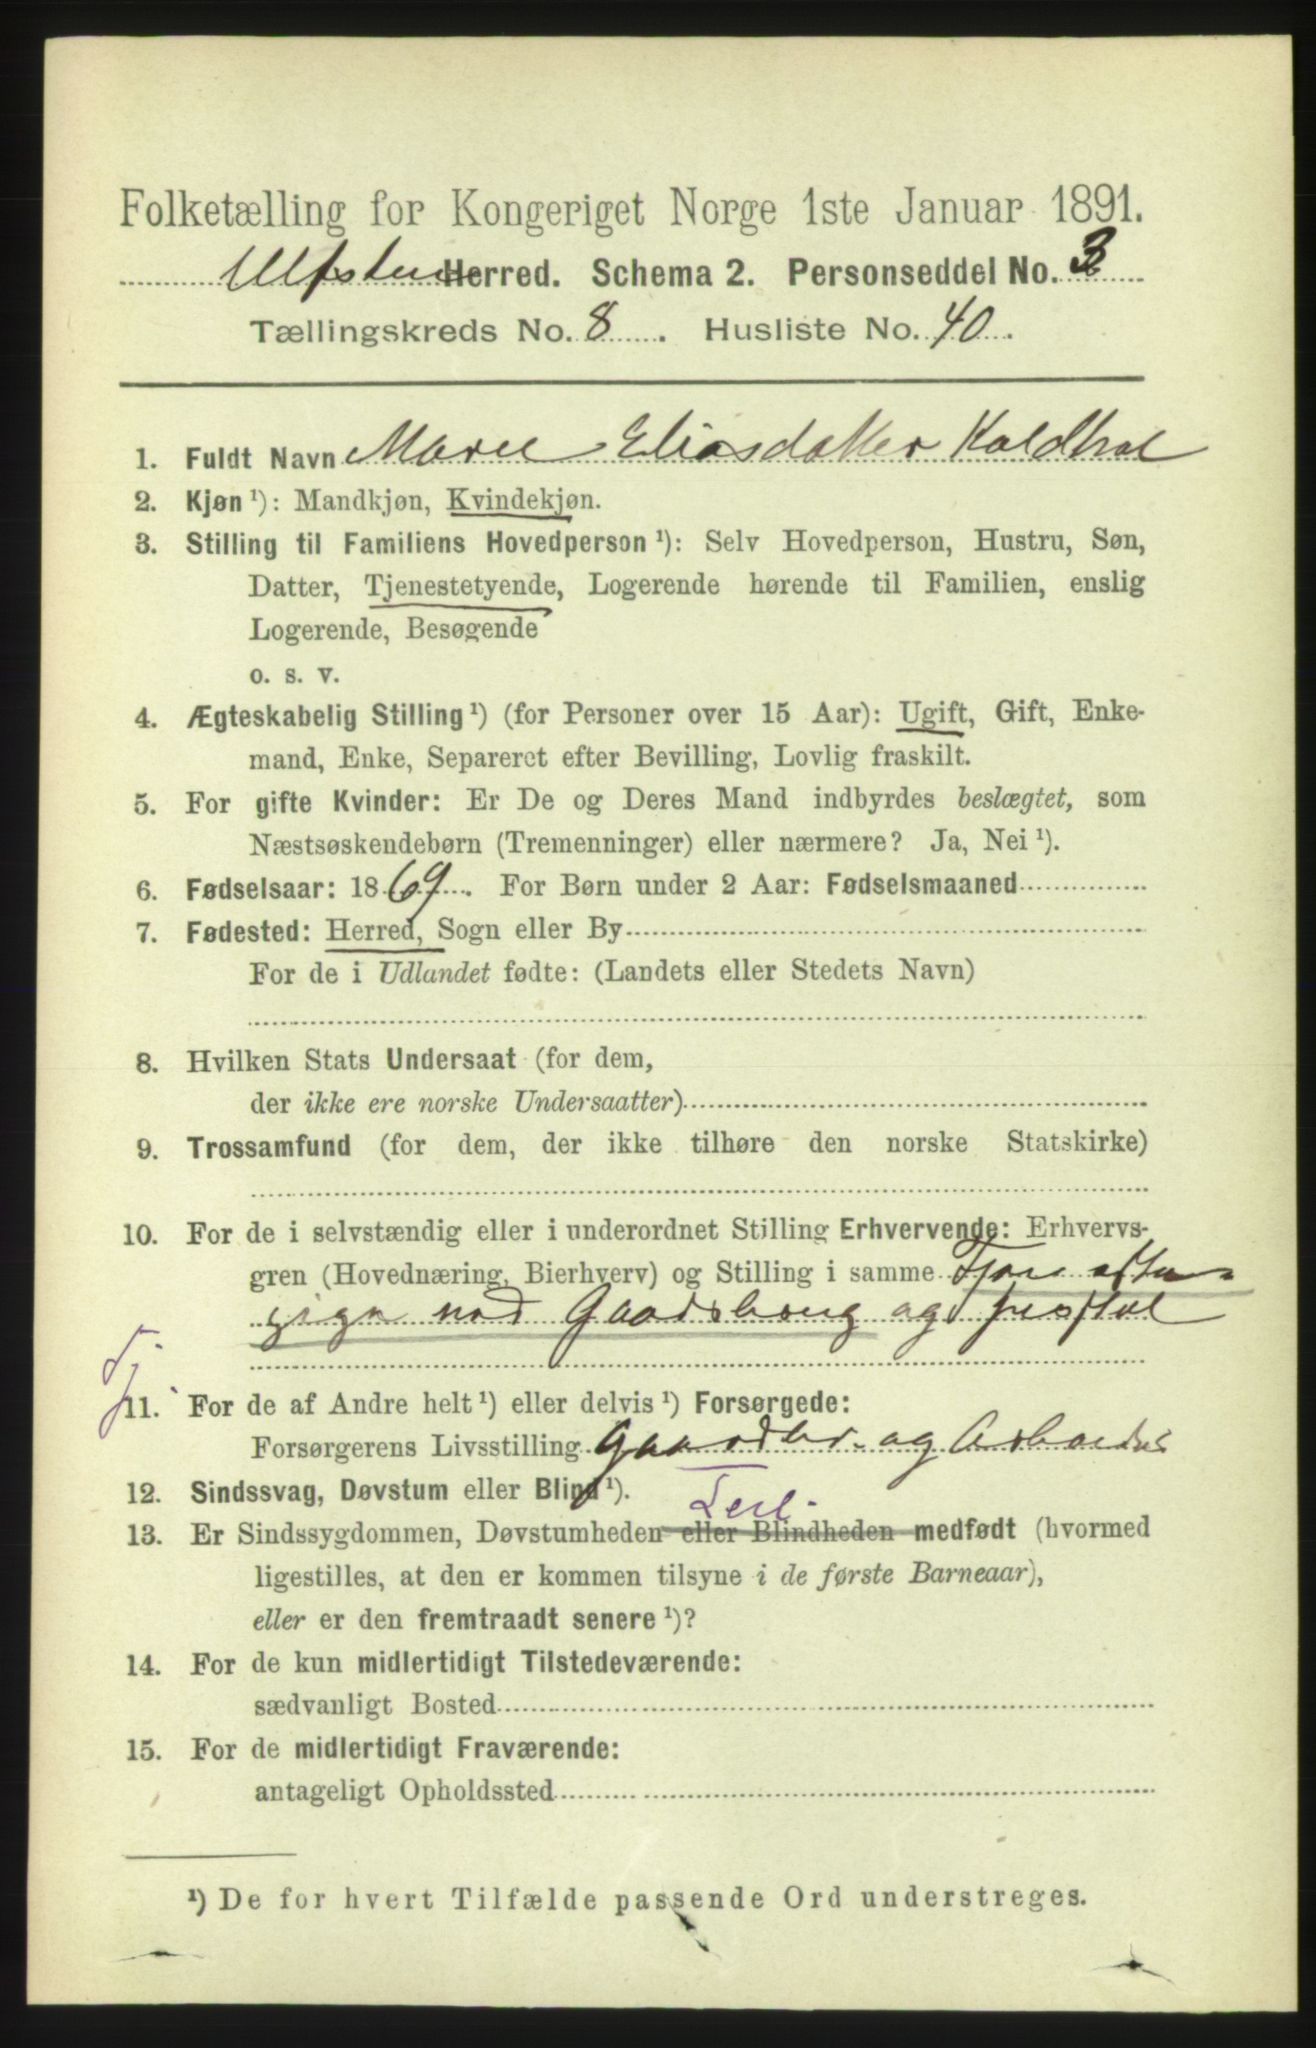 Folketælling for Kongeriget Norge 1ste Januar 1891.
Ulfsten Herred. Schema 2. Personseddel No. 3
Tællingskreds No. 8. Husliste No. 40.
1. Fuldt Navn Maree Eliasdatter Kaldhol
2. Kjøn ¹): Mandkjøn, Kvindekjøn.
3. Stilling til Familiens Hovedperson ¹): Selv Hovedperson, Hustru, Søn,
Datter, Tjenestetyende, Logerende hørende til Familien, enslig
Logerende, Besøgende
o. s. v.
4. Ægteskabelig Stilling ¹) (for Personer over 15 Aar): Ugift, Gift, Enke-
mand, Enke, Separeret efter Bevilling, Lovlig fraskilt.
5. For gifte Kvinder: Er De og Deres Mand indbyrdes beslægtet, som
Næstsøskendebørn (Tremenninger) eller nærmere? Ja, Nei ¹).
6. Fødselsaar: 1869. For Børn under 2 Aar: Fødselsmaaned
7. Fødested: Herred, Sogn eller By
For de i Udlandet fødte: (Landets eller Stedets Navn)
8. Hvilken Stats Undersaat (for dem,
der ikke ere norske Undersaatter)
9. Trossamfund (for dem, der ikke tilhøre den norske Statskirke)
10. For de i selvstændig eller i underordnet Stilling Erhvervende: Erhvervs-
gren (Hovednæring, Bierhverv) og Stilling i samme
Gaardsbrug og
Tj.
11. For de af Andre helt ¹) eller delvis ¹) Forsørgede:
Forsørgerens Livsstilling Gaardbr. og
12. Sindssvag, Døvstum eller Blind ¹).
13. Er Sindssygdommen, Døvstumheden eller Blindheden medfødt (hvormed
ligestilles, at den er kommen tilsyne i de første Barneaar),
eller er den fremtraadt senere ¹)?
14. For de kun midlertidigt Tilstedeværende:
sædvanligt Bosted
15. For de midlertidigt Fraværende:
antageligt Opholdssted
¹) De for hvert Tilfælde passende Ord understreges.